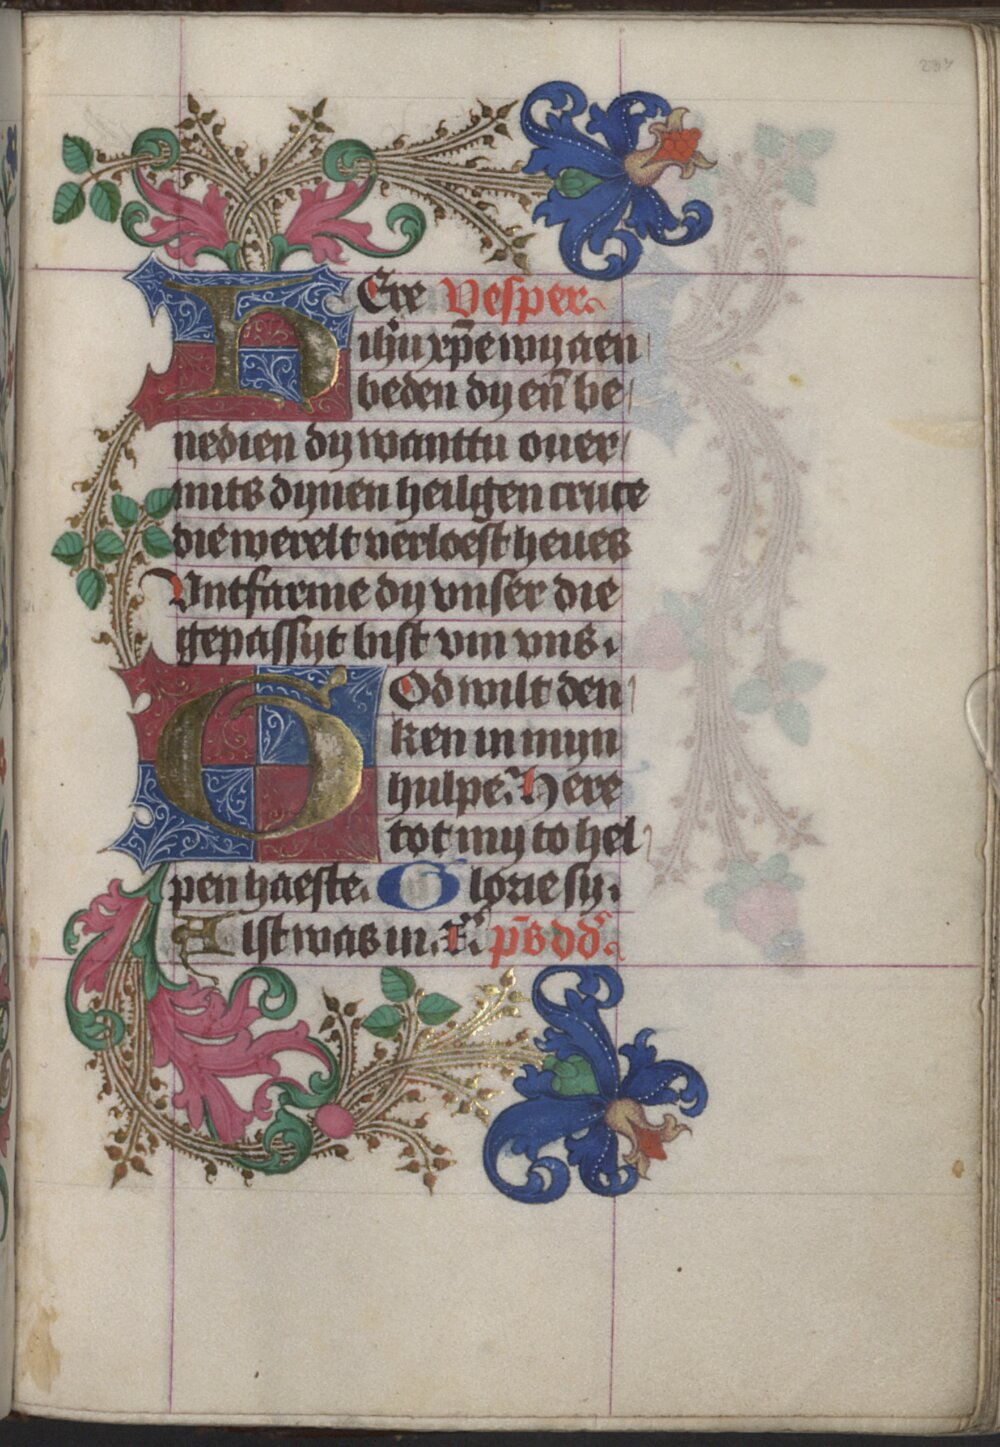 HEre Vesper.
ihũ xp̄e wy aen
beden dy en̄ be
nedien dy wanttu ouer
mits dynen heilgen cruce
die werelt verloest heues
Untfarme dy vnser die
gepassyt bist vm vns.
GOd wilt den
ken in myn
hulpe. Here
tot my to hel
pen haeste. Glorie sy.
Alst was in. p̄s dd.